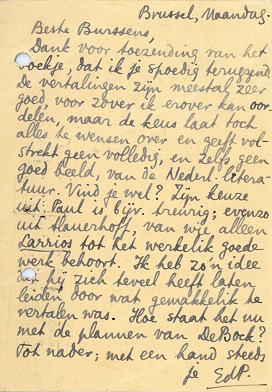 Brussel, Maandag.
Beste Burssens,
Dank voor toezending van het
boekje, dat ik je spoedig terugzend.
De vertalingen zijn meestal zeer
goed, voor zover ik erover kan oor-
delen, maar de keus laat toch
alles te wensen over en geeft vol-
strekt geen volledig, en zelfs geen
goed beeld, van de Nederl. litera-
tuur. Vind je wel? Zijn keuze
uit Paul is bijv. treurig; evenzo
uit Slauerhoff, van wie alleen
Larrios tot het werkelik goede
werk behoort. Ik heb zo'n idee
dat hij zich teveel heeft laten
leiden door wat gemakkelik te
vertalen was. Hoe staat het nu
met de plannen van De Bock?
Tot nader; met een hand steeds
je EdP.